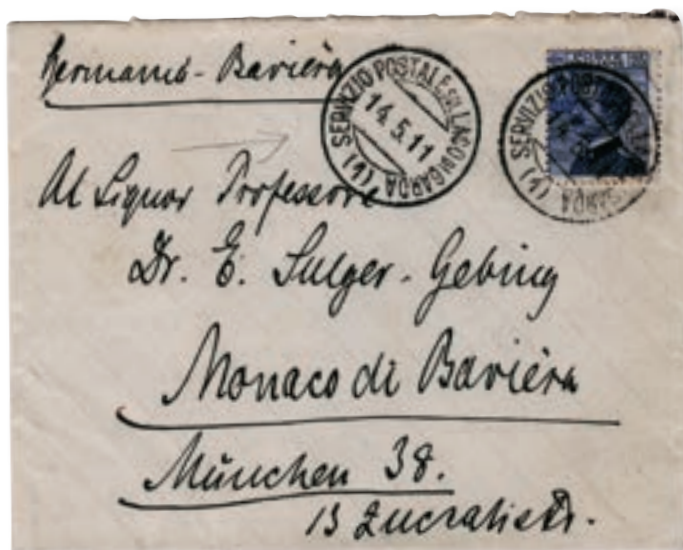 Germania - Baviera
SERVIZIO POSTALE SUL LAGO DI GARDA
14.5.11
(1)
SERVIZIO POSTALE
GARDA (1)
Al Signor Professore
Dr. E. Sulger-Gebing
Monaco di Baviera
München 38.
13